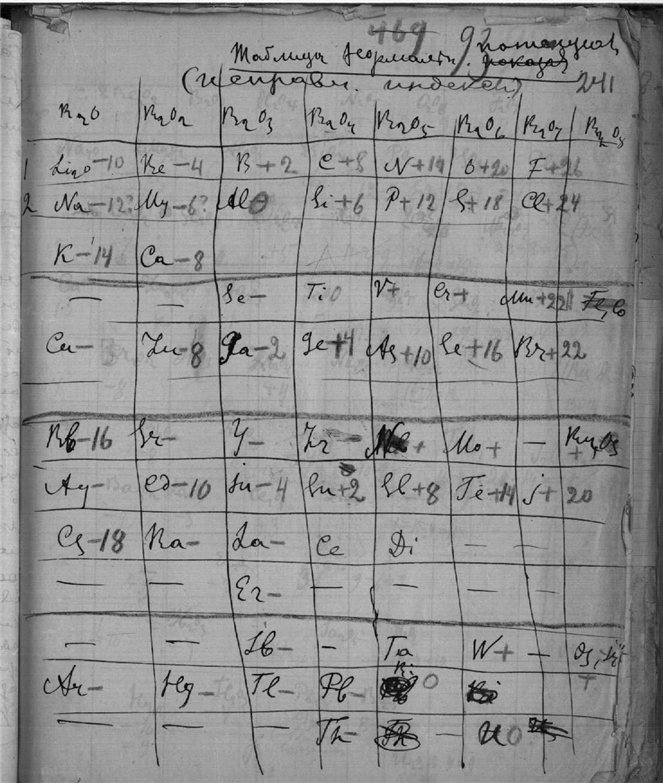 469 92
Таблица нормальн. потенциал
(исправл. индексы) 241
R₂O R₂O₂ R₂O₃ R₂O₄ R₂O₅ R₂O₆ R₂O₇ R₂O₈
1 Li₂O-10 Be-4 B+2 C+8 N+14 O+20 F+26
2 Na-12? Mg-6? Al 0 Si+6 P+12 S+18 Cl+24
K-14 Ca-8
— — Sc- Ti 0 V+ Cr+ Mn+22
Cu- Zn-8 Ga-2 Ge+4 As+10 Se+16 Br+22
Rb-16 Sr- Y- Zr Nb+ Mo+ — Ru, Os +
Ag- Cd-10 In-4 Sn+2 Sb+8 Te+14 J+20
Cs-18 Ba- La- Ce Di — —
— — Er- — — — —
— — Yb- - Ta W+ - Os, Ir+
Au- Hg- Tl- Pb- Bi 0 +
— — — Th- — U 0